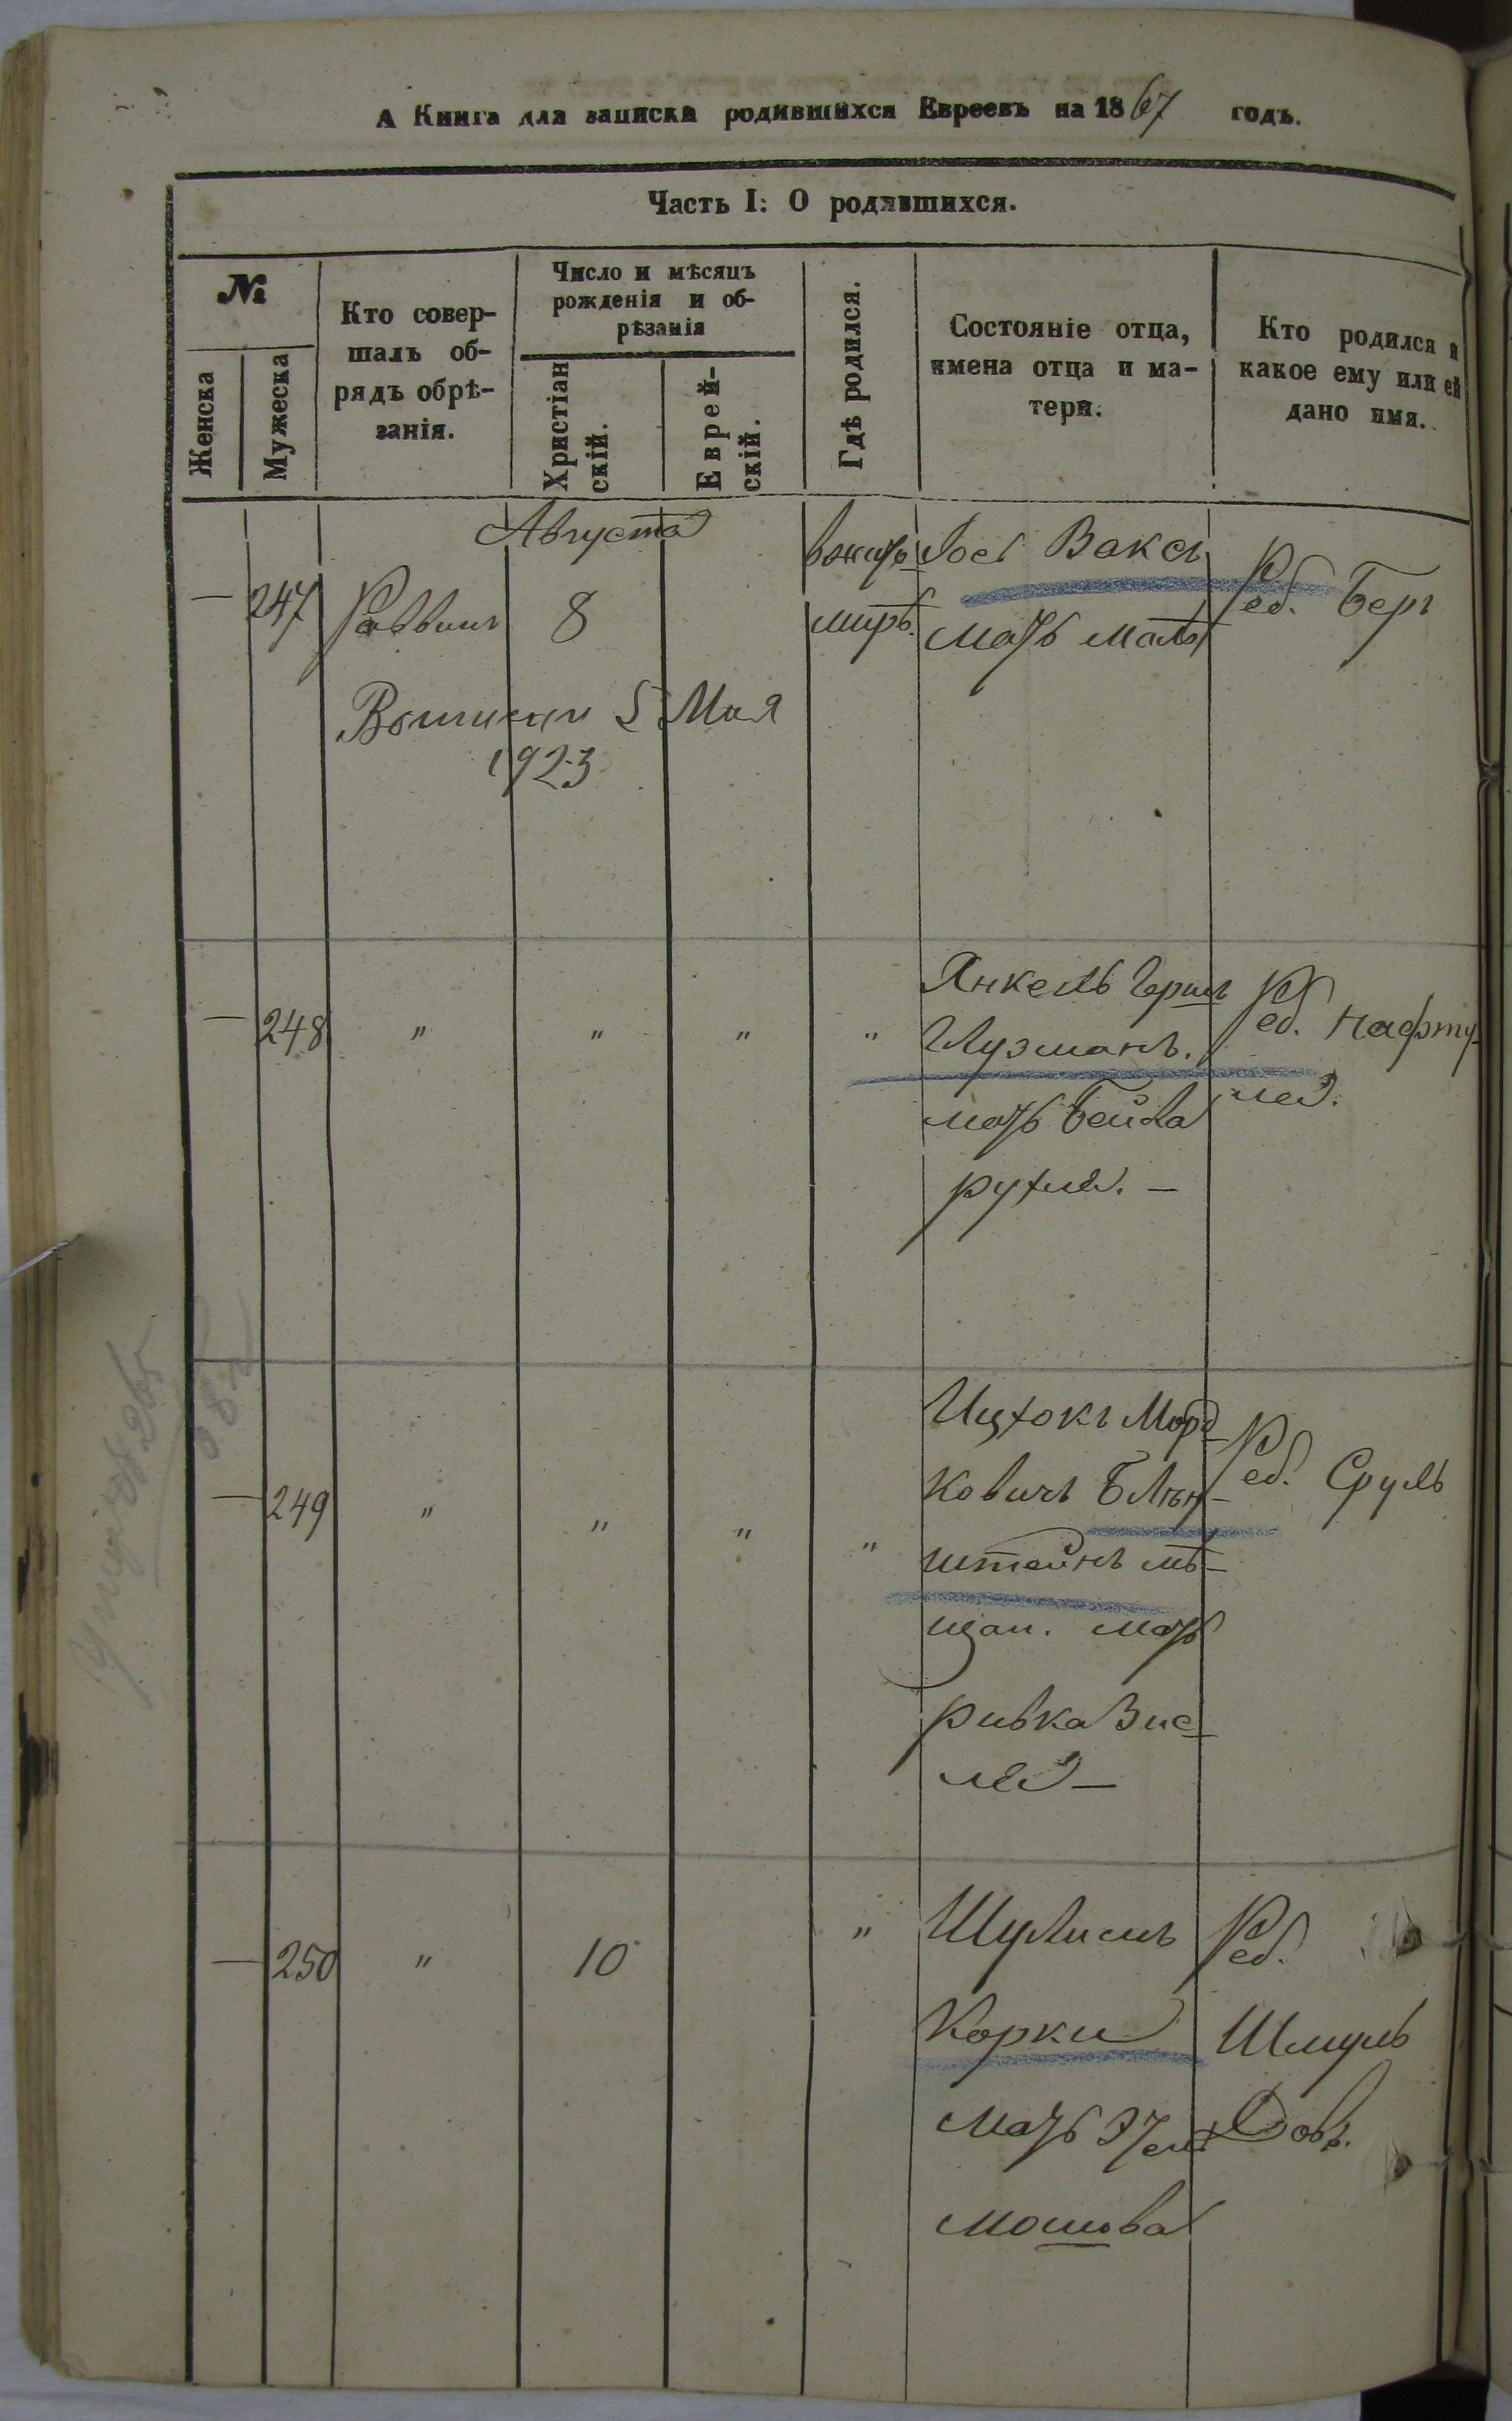 А Книга для записки родившихся Евреевъ на 1867 годъ.
Часть I: О родившихся.
№
Женска
Мужеска
Кто совер-
шалъ об-
рядъ обрѣ-
занія.
Число и мѣсяцъ
рожденія и об-
рѣзанія
Христіан
скій.
Еврей-
скій.
Гдѣ родился.
Состояніе отца,
имена отца и ма-
тери.
Кто родился и
какое ему или ей
дано имя.
Августа
— 247 Раввинъ 8
вжито
миръ.
ІосьВаксъ
мать Маля
Реб. Беръ
5 Мая
1923
— 248 " " " "
Янкель Герш
Глузманъ.
мать Бейла
рухля. —
Реб. Нафту-
ле.
— 249 " " " "
Ицхокъ Морд
ковичъ Блин-
штейнъ мѣ-
щан. мать
ривка Зис
ля —
Реб. Сруль
— 250 " 10 "
Шулимъ
Корки
мать
мошова
Реб.
Шмуль
Довъ.